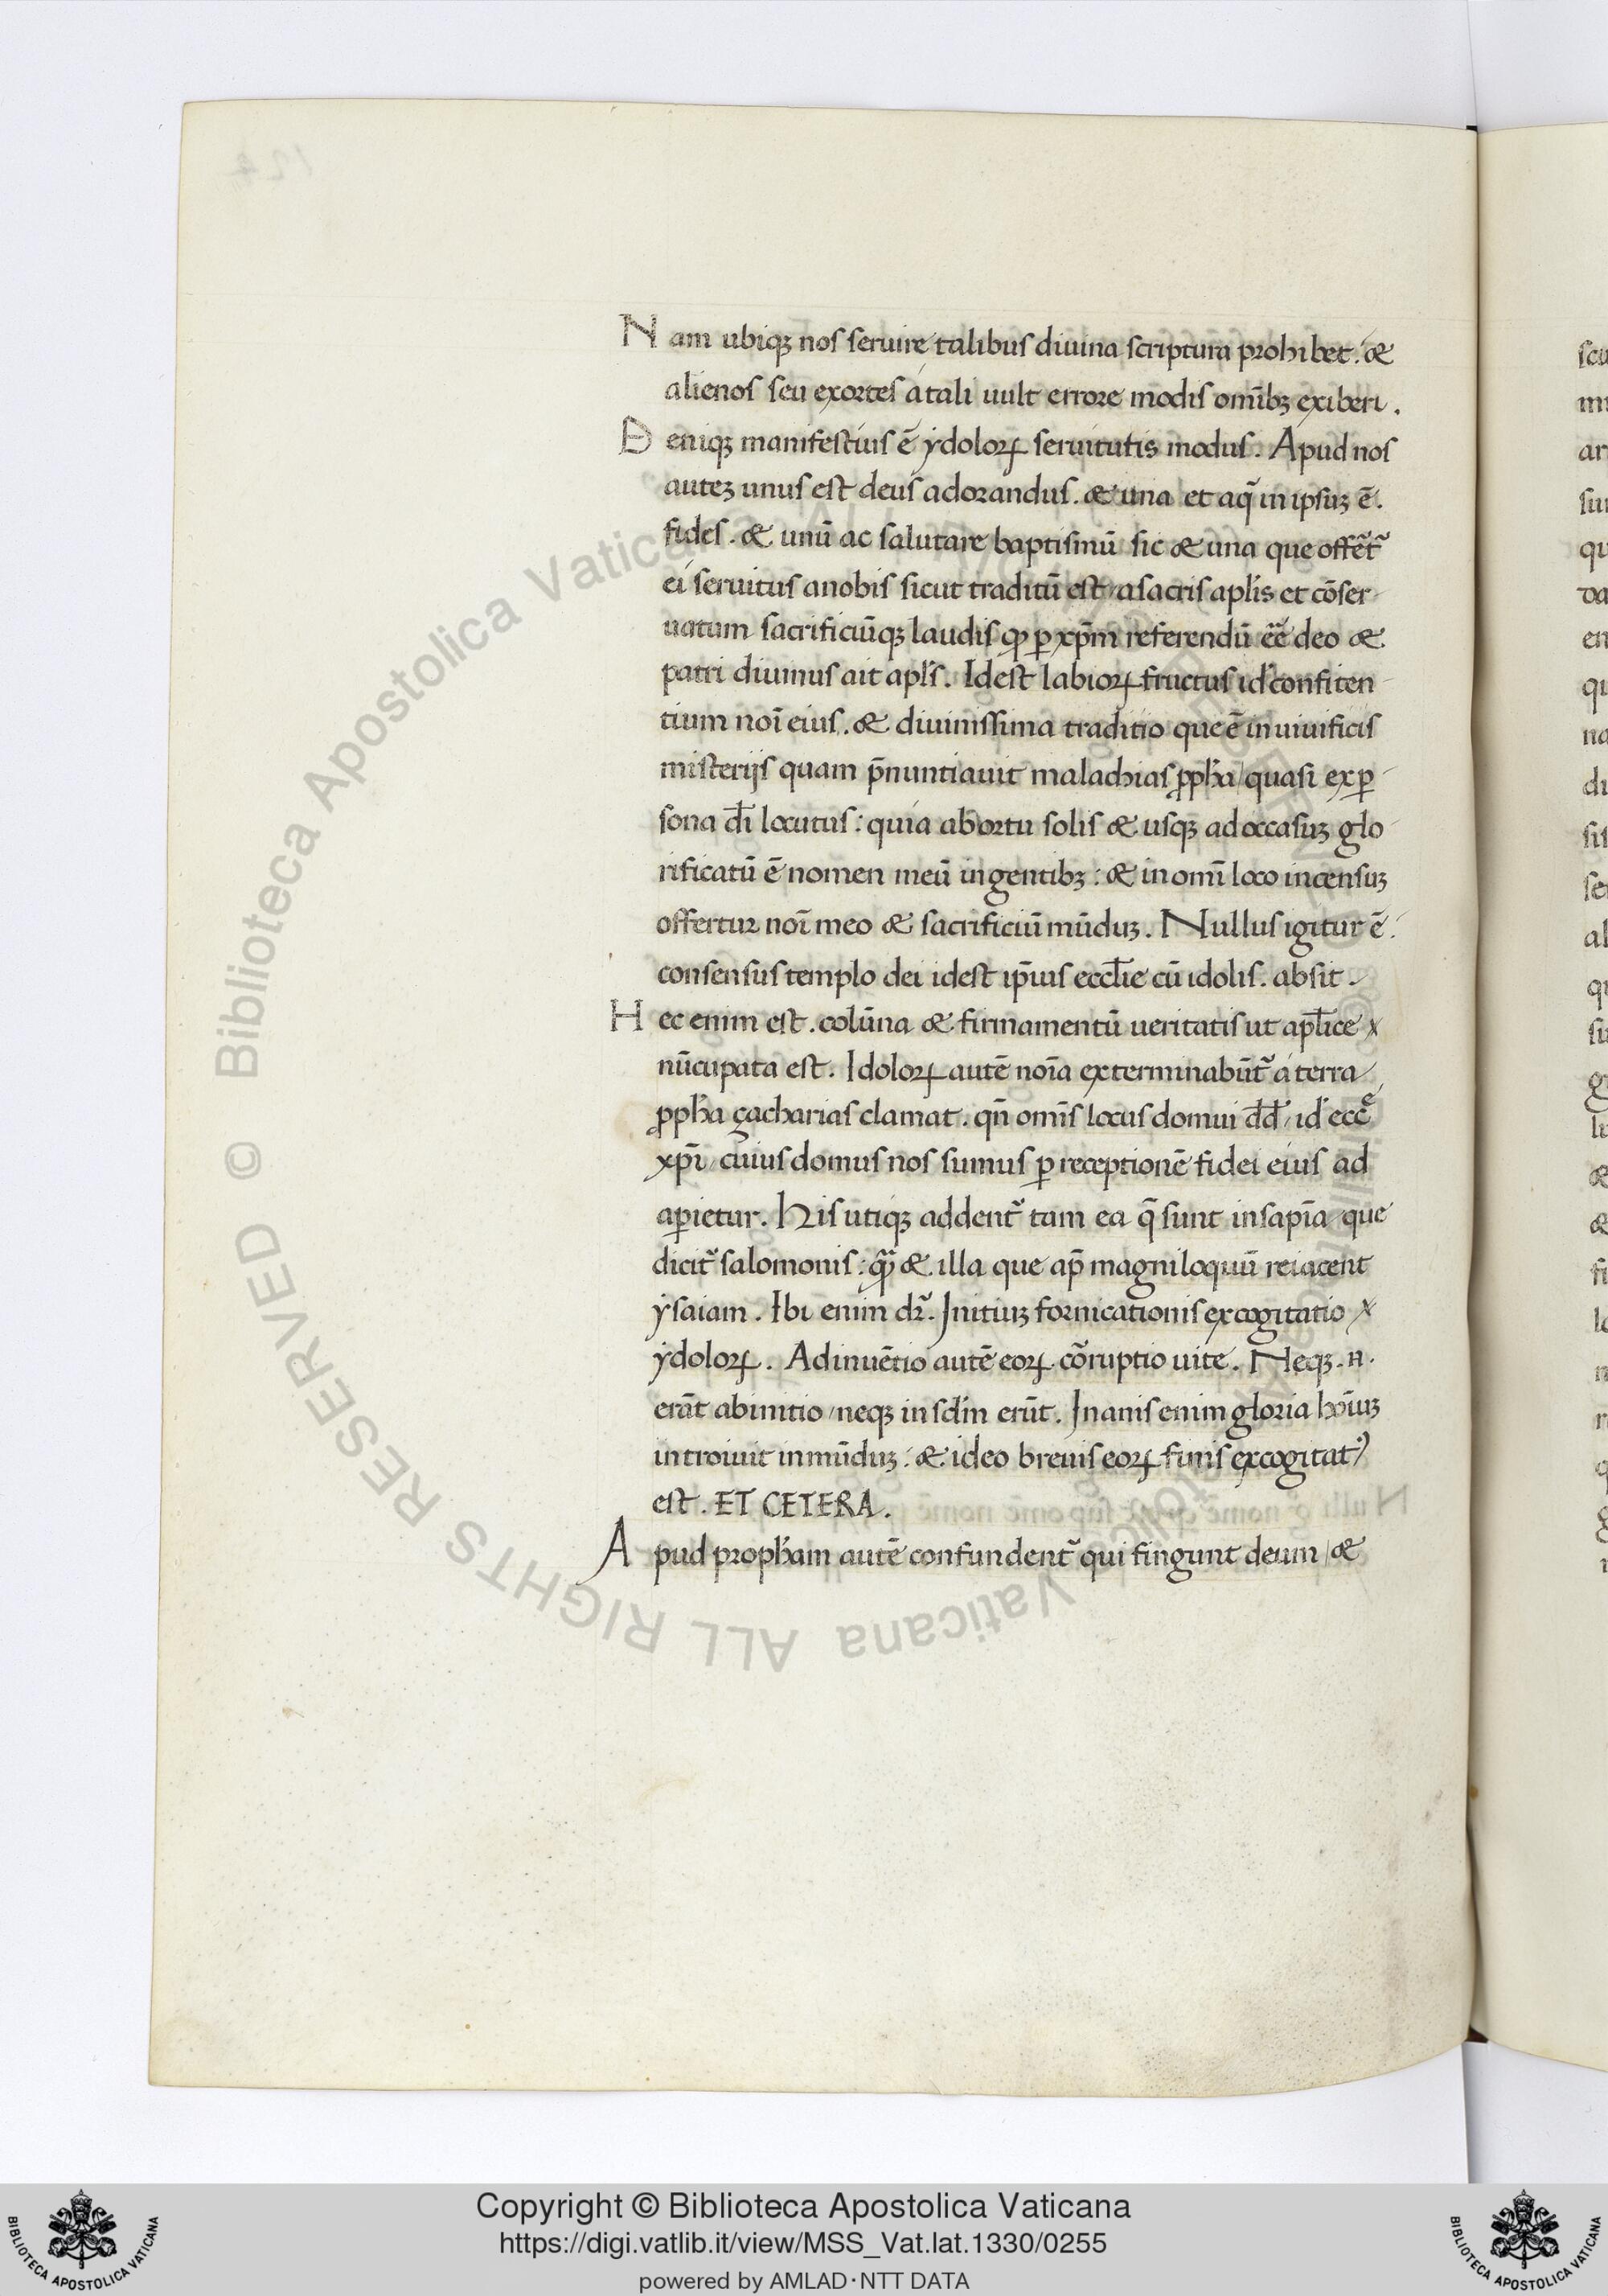 Nam ubiqꝫ nos seruire talibus diuina scriptura prohibet. &
alienos seu exortes á tali uult errore modis om̄ibꝫ exiberi.
Deniqꝫ manifestius ē ydoloꝝ seruitutis modus. Apud nos
auteꝫ unus est deus adorandus. & una et aq̄ in ipsuꝫ ē.
fides. & unū ac salutare baptismū sic & una que offēt᷑
ei seruitus a nobis sicut traditū est a sacris apl̄is et cōser
uatum sacrificiūqꝫ laudis ꝙ ꝑ xp̄m referendū ēē deo &
patri diuinus ait apl̄s. Idest labioꝝ fructus id confiten
tium noī eius. & diuinissima traditio que ē in uiuificis
misterijs quam p̄nuntiauit malachias ꝓph̄a quasi ex ꝑ
sona dī locutus: quia ab ortu solis & usqꝫ ad occasuꝫ glo
rificatū ē nomen meū in gentibꝫ: & in omī loco incensuꝫ
offertur noī meo & sacrificiū mūduꝫ. Nullus igitur ē.
consensus templo dei idest ip̄ius eccl̄ie cū idolis. absit.
Hec enim est. colūna & firmamentū ueritatis ut apl̄ice
nūcupata est. Idoloꝝ autē noīa exterminabūt᷑ á terra
ꝓph̄a zacharias clamat. qn̄ om̄is locus domui dd̄ id ecc̄ę
xp̄i cuius domus nos sumus ꝑ receptionē fidei eius ad
aꝑietur. His utiqꝫ addent᷑ tam ea q̄ sunt in sapīa que
dicit᷑ salomonis: quā & illa que ap̄ magniloquū reiacent
ysaiam. Ibi enim dr̄. Initiuꝫ fornicationis excogitatio
ydoloꝝ. Adinuētio autē eoꝝ cōrruptio uite. Neqꝫ .n.
erāt ab initio neqꝫ in sc̄lm erūt. Inanis enim gloria hoīuꝫ
introiuit in mūduꝫ: & ideo breuis eoꝝ finis excogitatꝰ
est. ET CETERA.
Apud proph̄am autē confundent᷑ qui fingunt deum &
Copyright © Biblioteca Apostolica Vaticana
https://digi.vatlib.it/view/MSS_Vat.lat.1330/0255
powered by AMLAD·NTT DATA
BIBLIOTECA APOSTOLICA VATICANA
BIBLIOTECA APOSTOLICA VATICANA